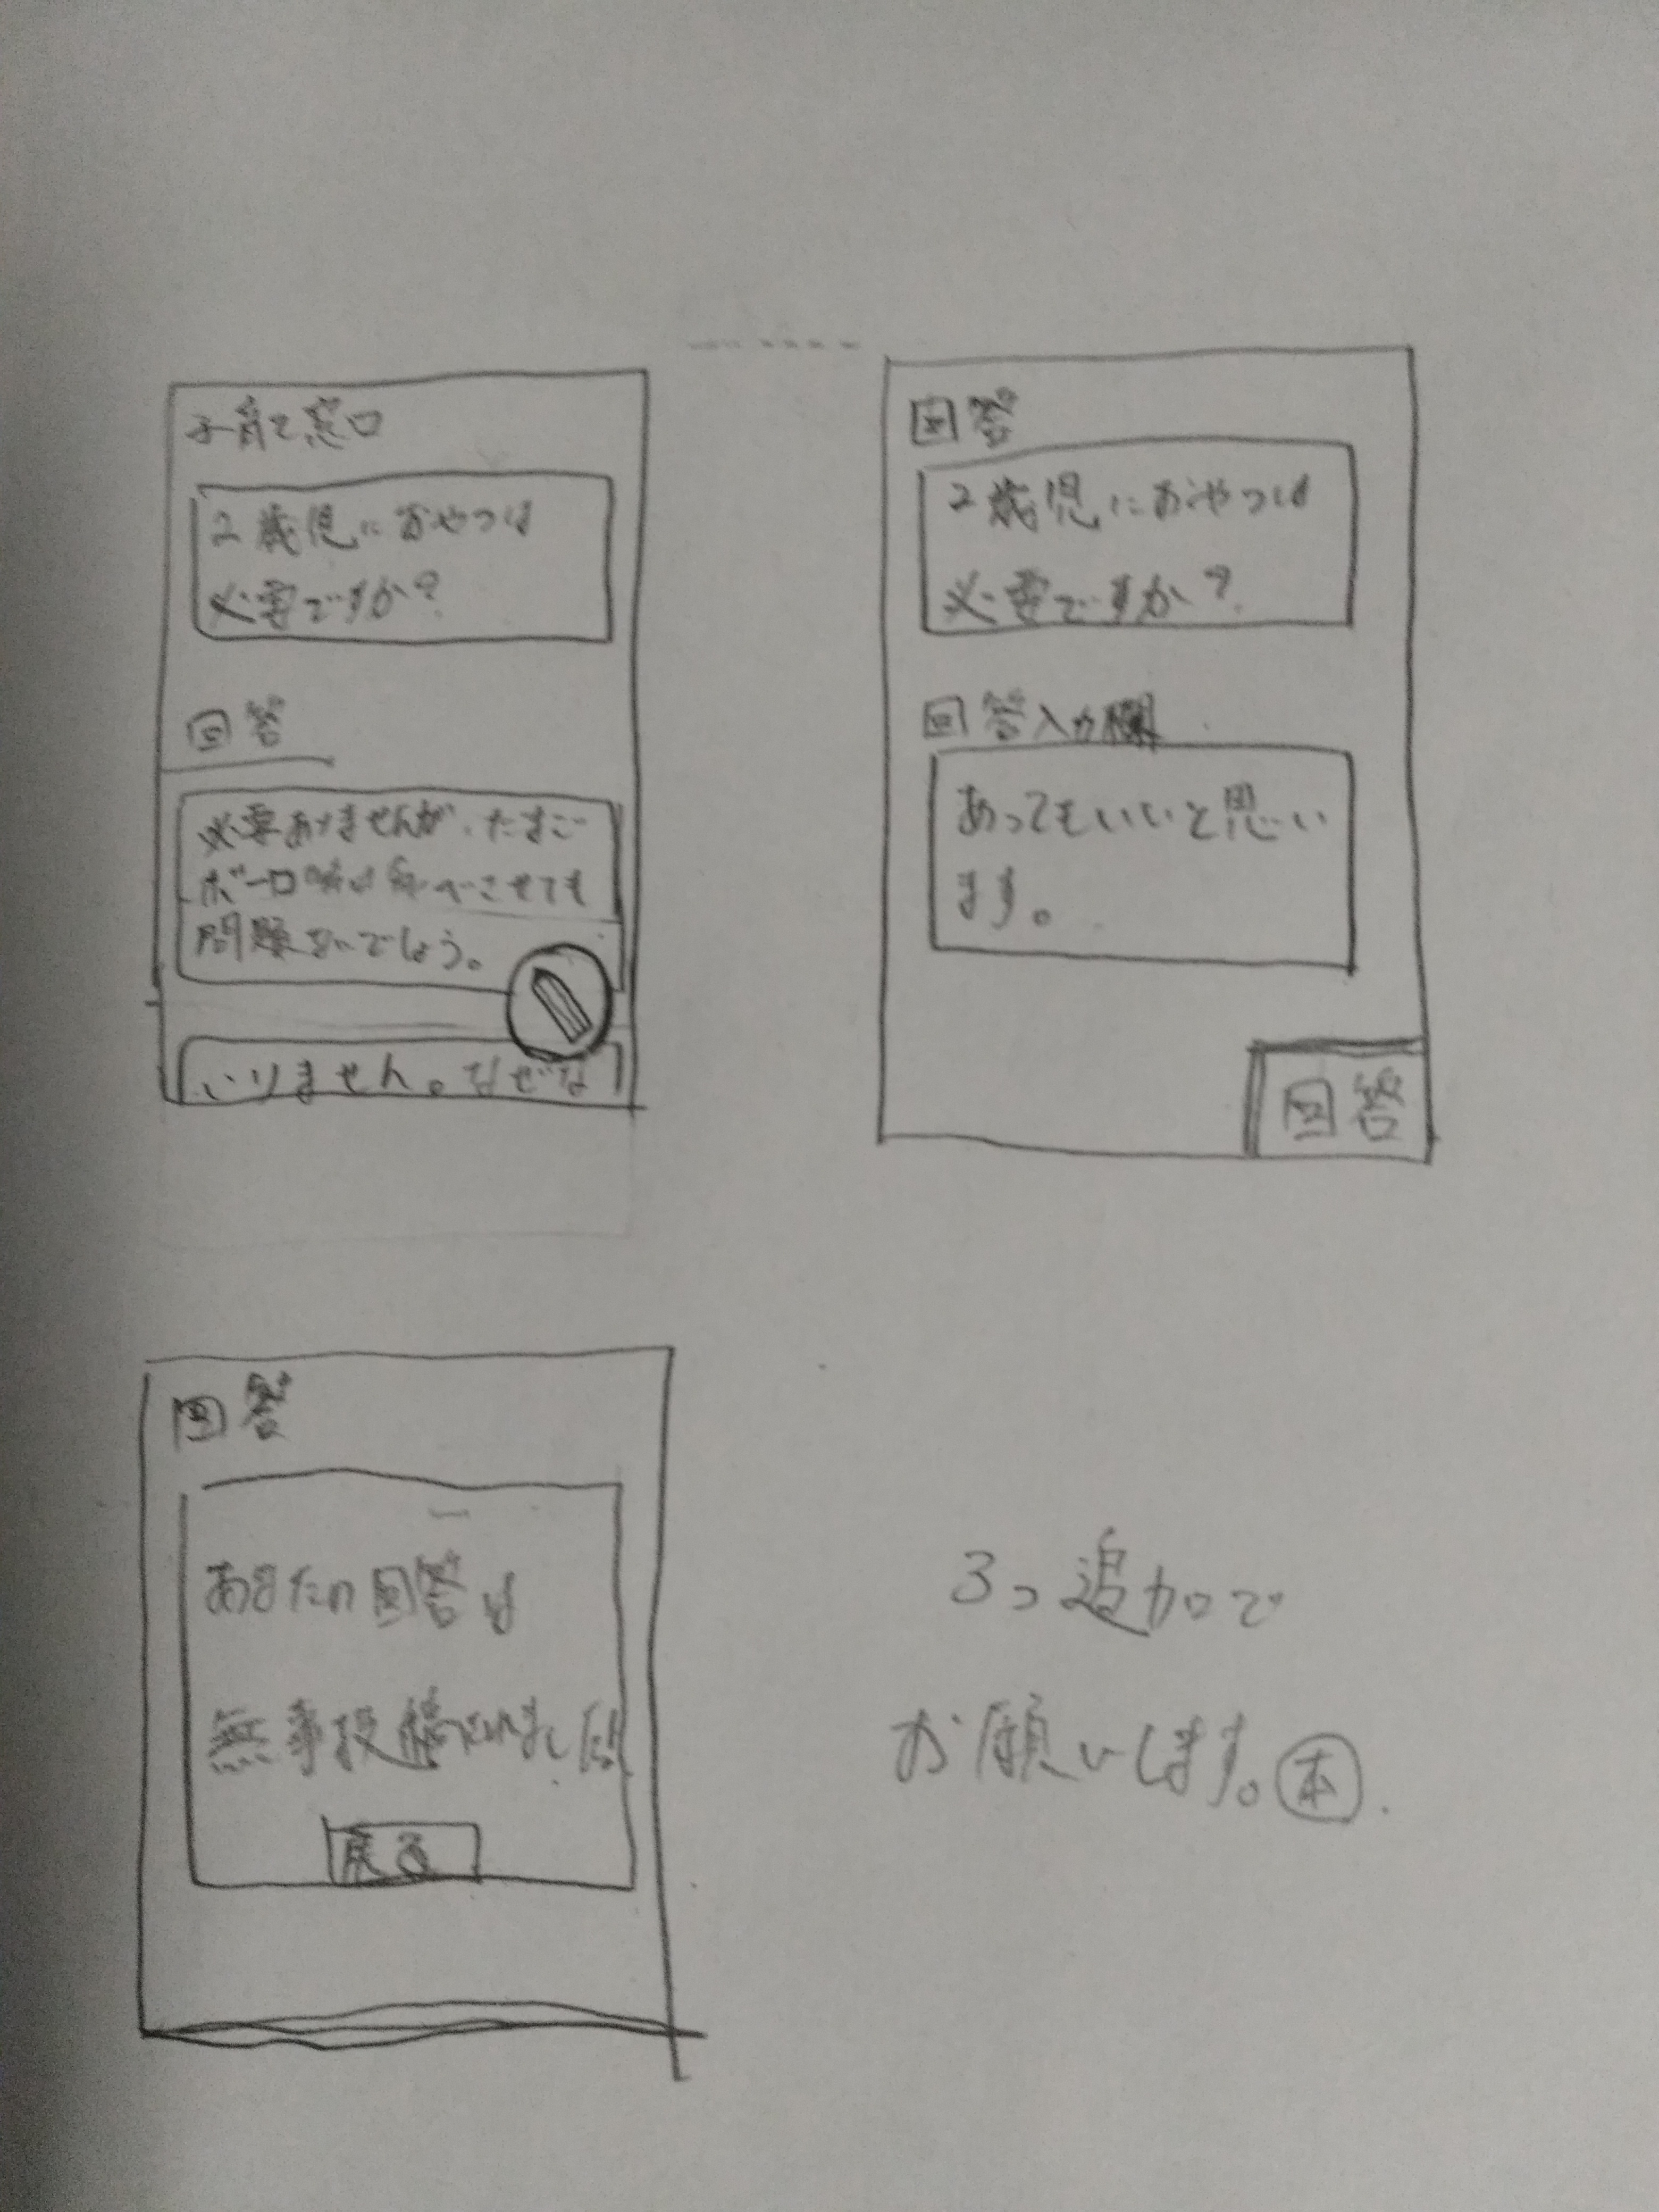 子育て窓口
2歳児におやつは
必要ですか?
回答
必要ありませんが、たまご
ボーロ 食べさせても
問題ないでしょう。
いりません。なぜな
回答
2歳児におやつは
必要ですか?
回答入力欄
あってもいいと思い
ます。
回答
回答
あなたの回答は
無事投稿されました
戻る
3つ追加で
お願いします。本